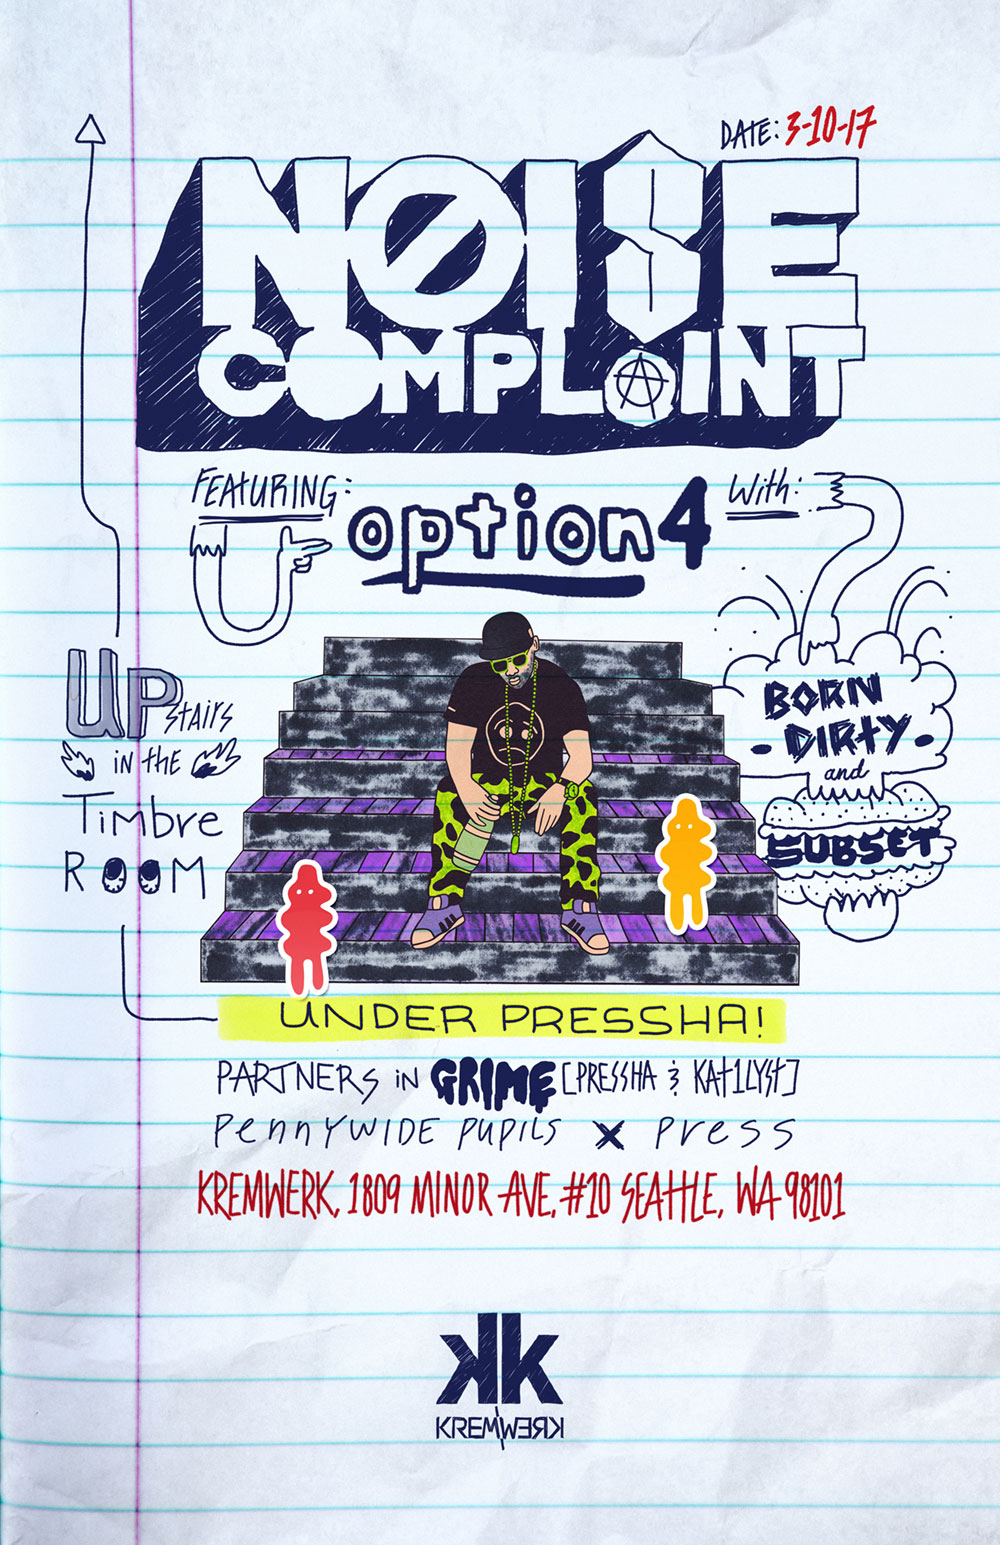 DATE: 3-10-17
NOISE
COMPLAINT
FEATURING:
option4
With:
BORN
DIRTY
and
SUBSET
UPstairs
in the
Timbre
ROOM
UNDER PRESSHA!
PARTNERS in GRIME [PRESSHA & KAT1LYST]
PENNYWIDE PUPILS X Press
KREMWERK, 1809 MINOR AVE, #10 SEATTLE, WA 98101
kk
KREMWERK